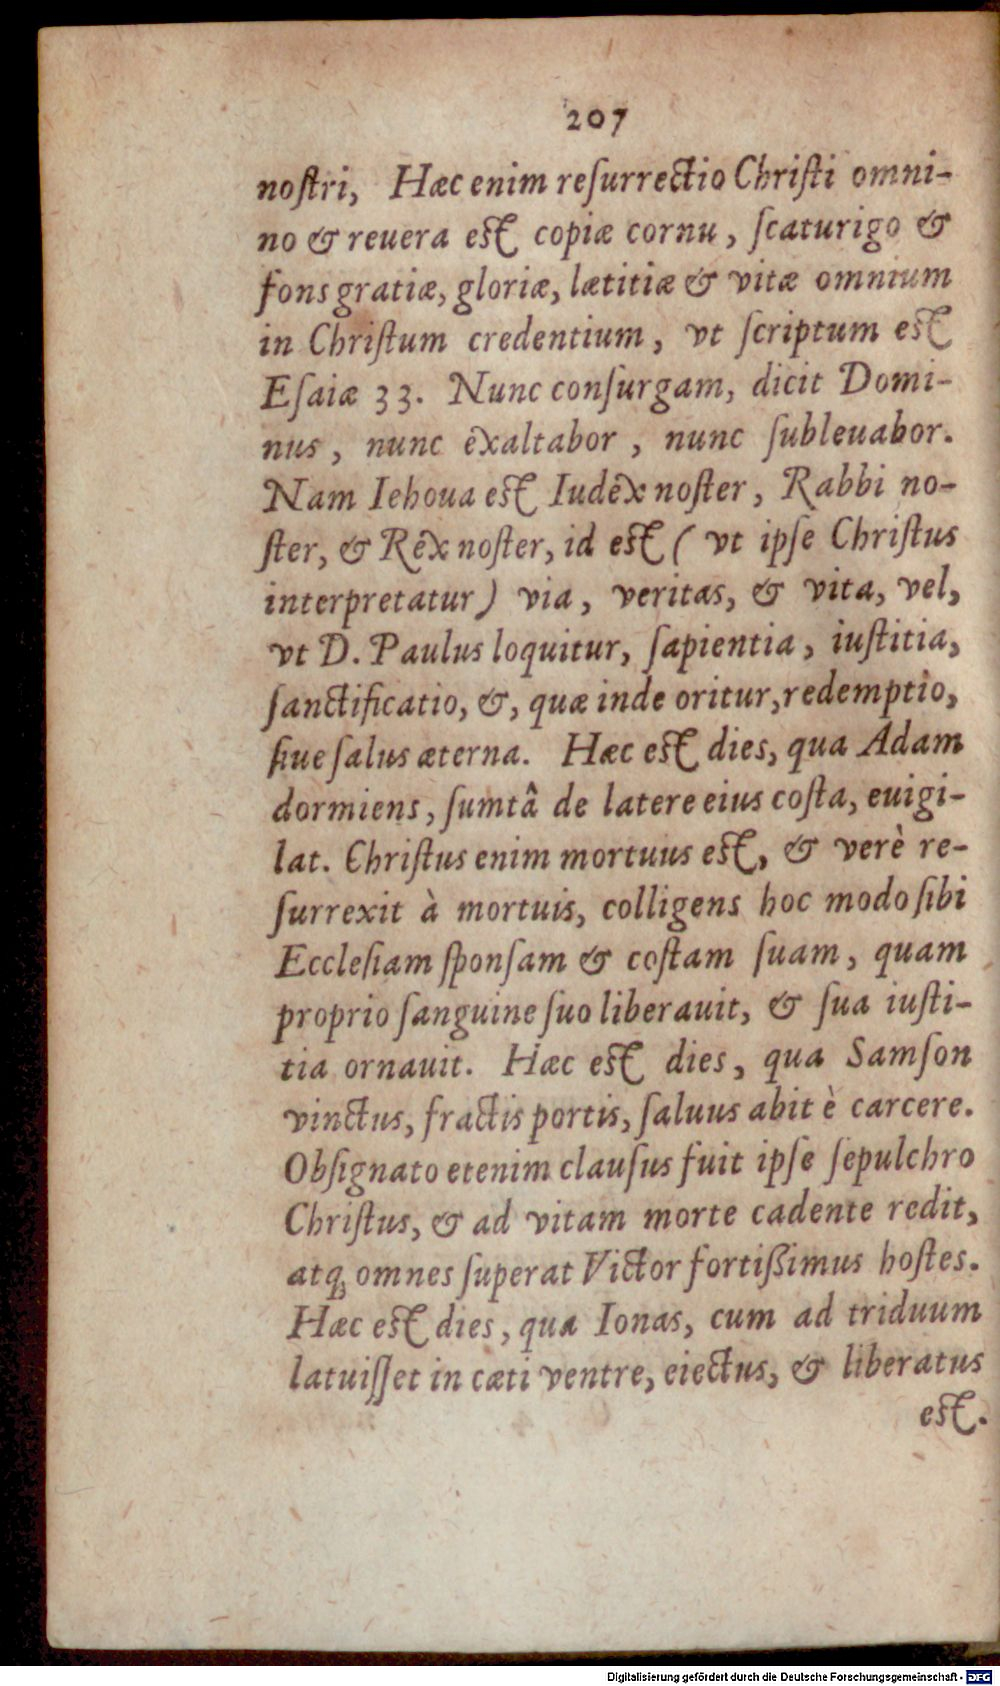 207
noſtri, Hæc enim reſurrectio Chriſti omni-
no & reuera eſt copiæ cornu, ſcaturigo &
fons gratiæ, gloriæ, lætitiæ & vitæ omnium
in Chriſtum credentium, vt ſcriptum eſt
Eſaiæ 33. Nunc conſurgam, dicit Domi-
nus, nunc exaltabor, nunc ſubleuabor.
Nam Iehoua eſt Iudex noſter, Rabbi no-
ſter, & Rex noſter, id eſt (vt ipſe Chriſtus
interpretatur) via, veritas, & vita, vel,
vt D. Paulus loquitur, ſapientia, iuſtitia,
ſanctificatio, &, quæ inde oritur, redemptio,
ſiue ſalus æterna. Hæc eſt dies, qua Adam
dormiens, ſumtâ de latere eius coſta, euigi-
lat. Chriſtus enim mortuus eſt, & verè re-
ſurrexit à mortuis, colligens hoc modo ſibi
Eccleſiam ſponſam & coſtam ſuam, quam
proprio ſanguine ſuo liberauit, & ſua iuſti-
tia ornauit. Hæc eſt dies, qua Samſon
vinctus, fractis portis, ſaluus abit è carcere.
Obſignato etenim clauſus fuit ipſe ſepulchro
Chriſtus, & ad vitam morte cadente redit,
atq; omnes ſuperat Victor fortißimus hoſtes.
Hæc eſt dies, qua Ionas, cum ad triduum
latuiſſet in cæti ventre, eiectus, & liberatus
eſt.
Digitalisierung gefördert durch die Deutsche Forschungsgemeinschaft - DFG